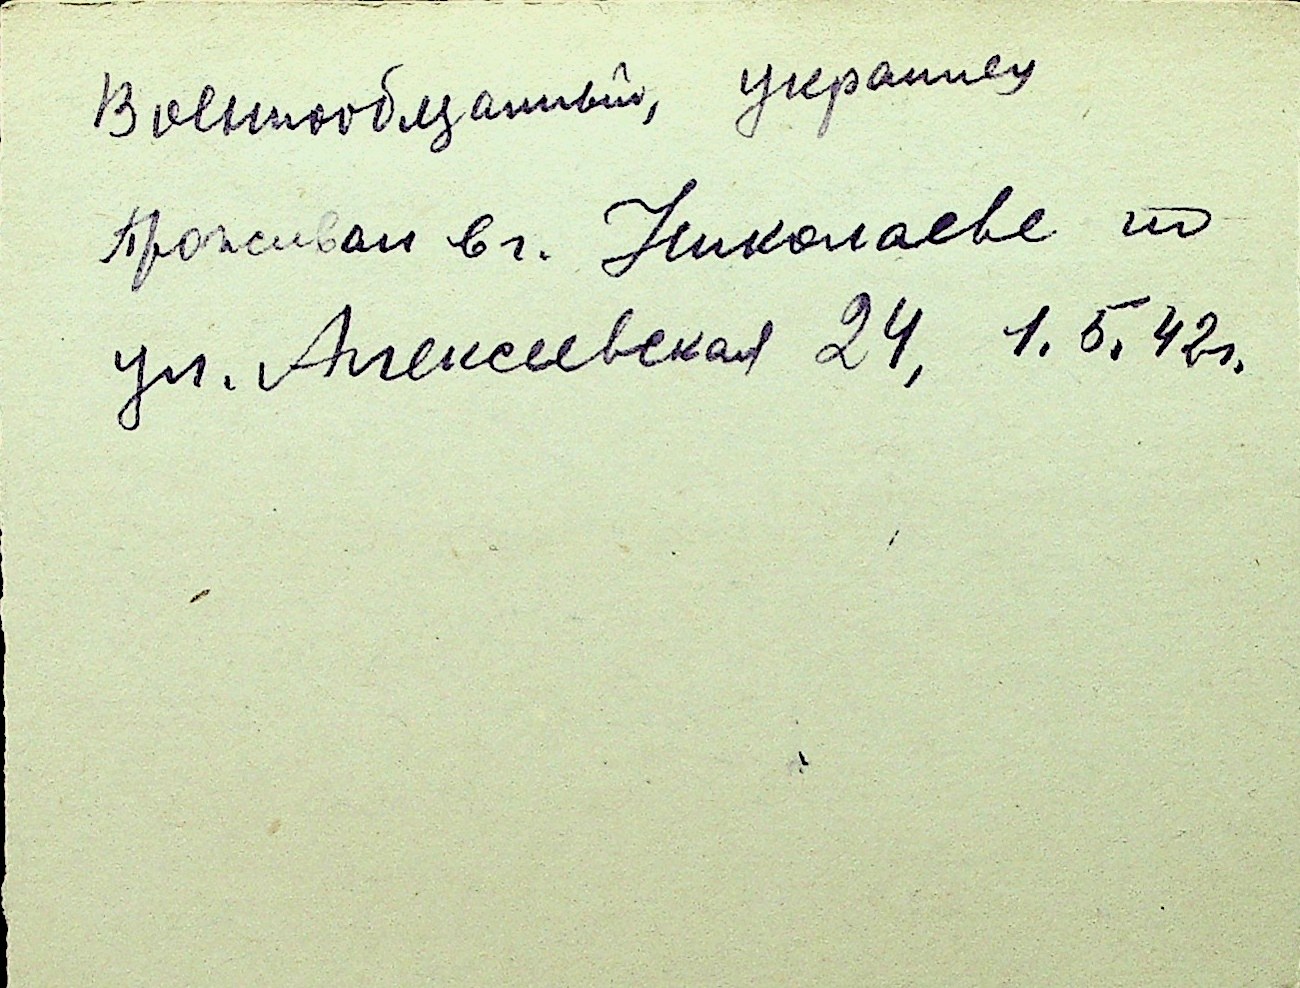 Военнообязанный, украинец
Проживал в г. Николаеве по
ул. Алексеевская 24, 1.5.42г.